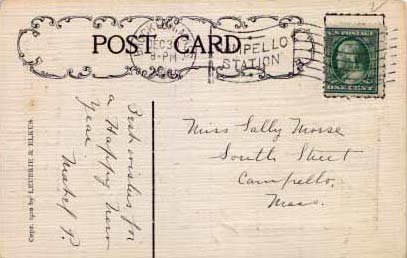 POST CARD
DEC 3
8-PM
STATION
U.S. POSTAGE
ONE CENT
Best wishes for
a Happy New
Year.
Mabel P.
Miss Sally Morse
South Street
Campello,
Mass.
Copr. 1910 by LEUBRIE & ELKUS